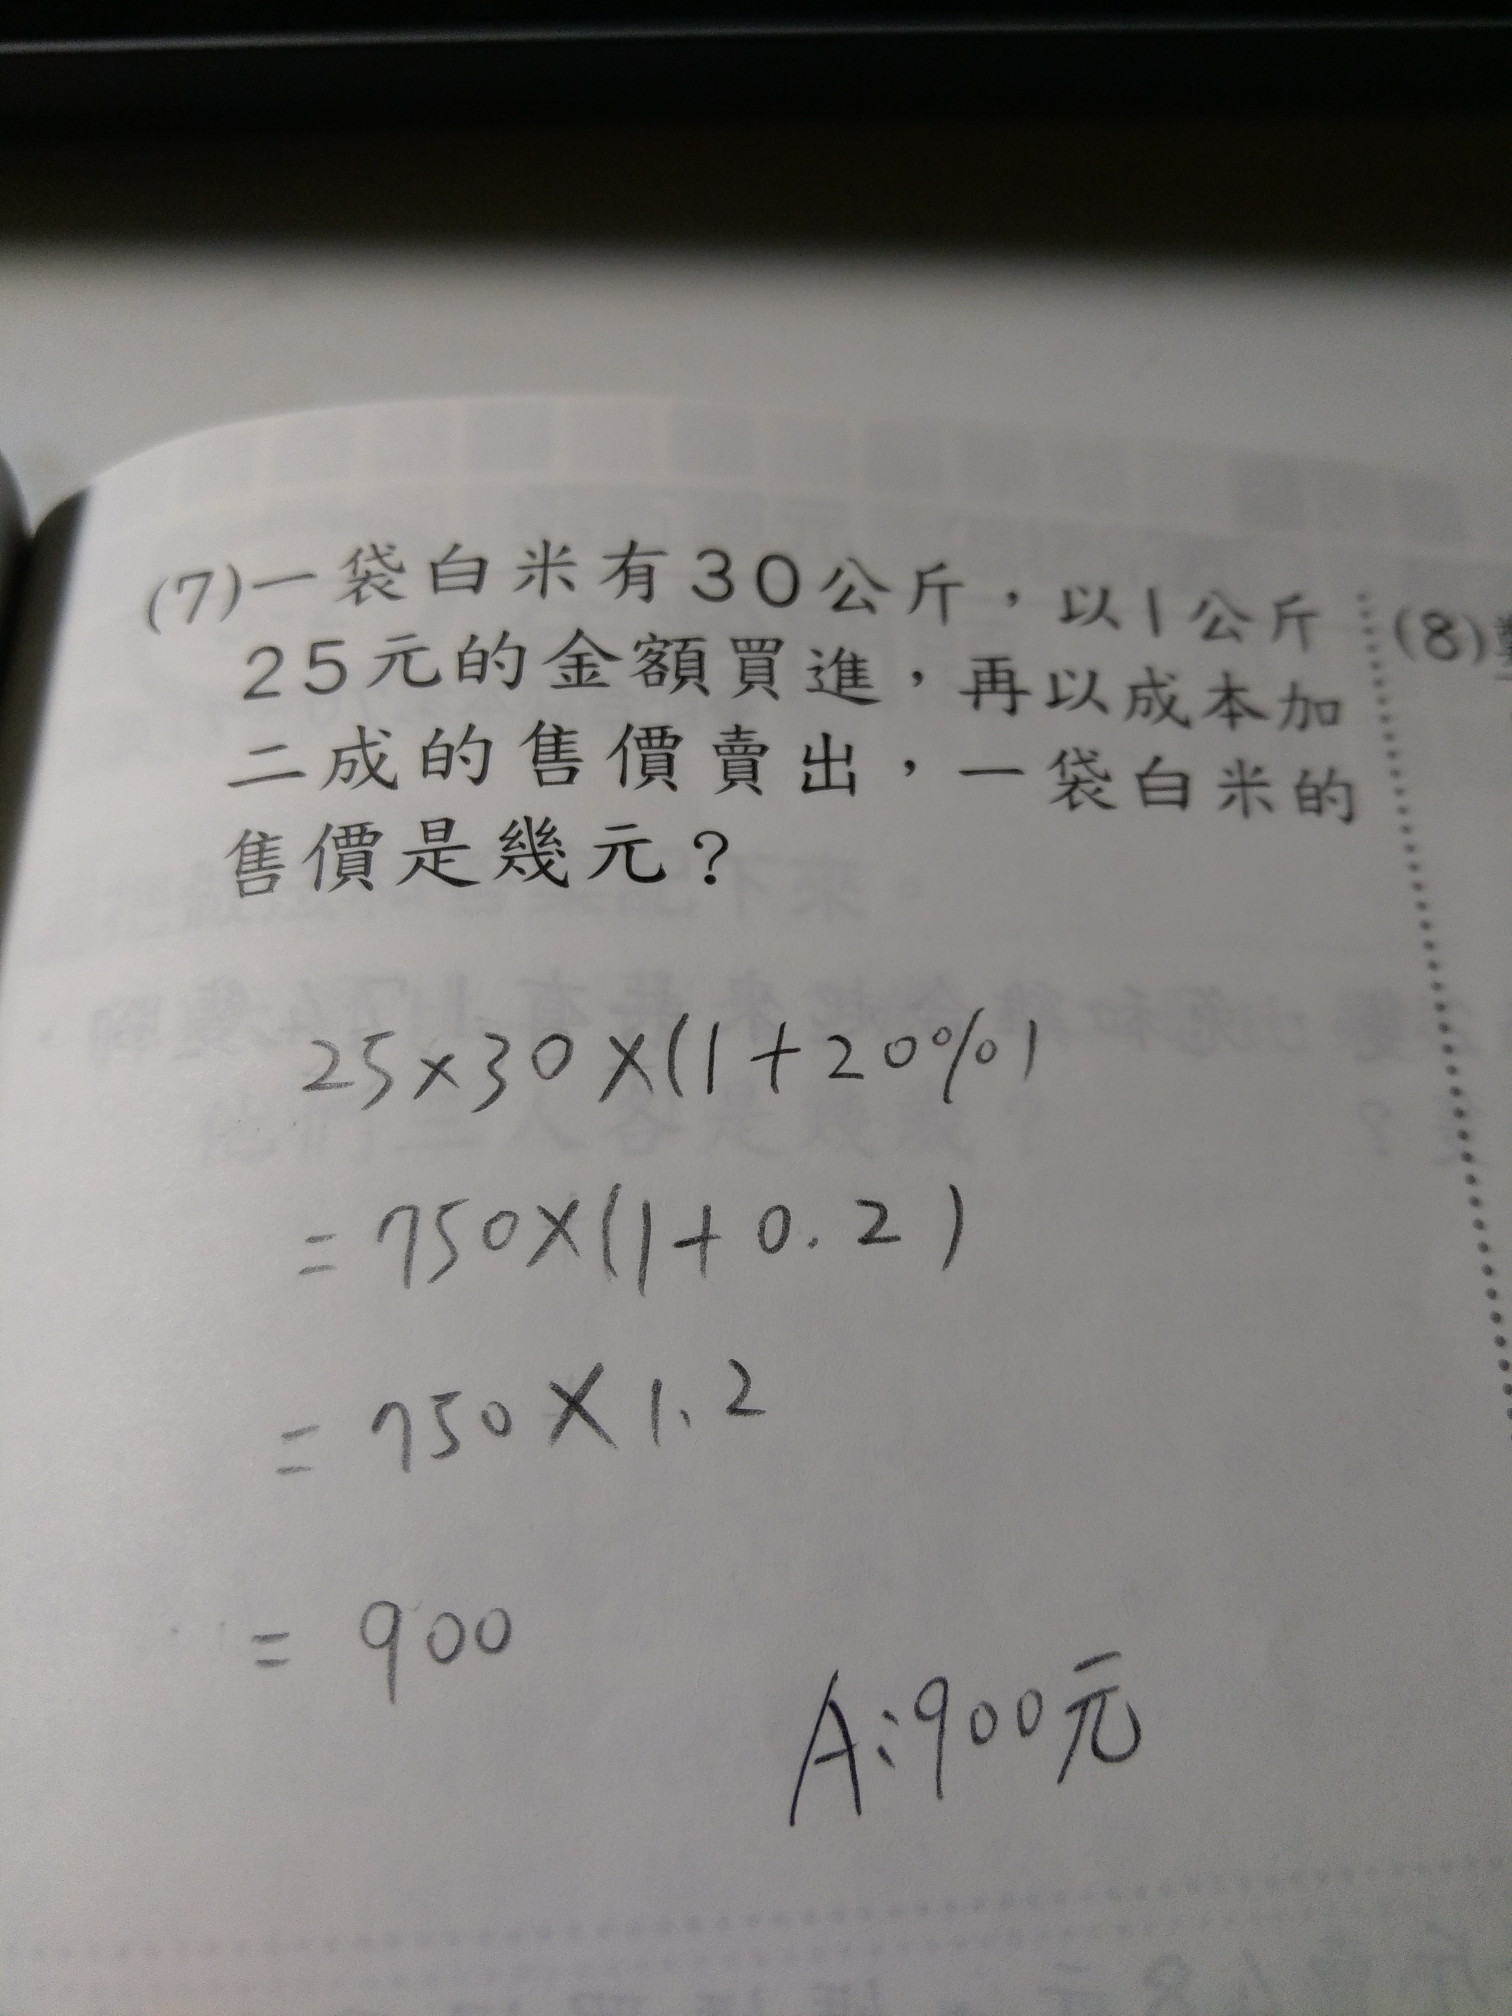 (7)一袋白米有30公斤，以1公斤
25元的金額買進，再以成本加
二成的售價賣出，一袋白米的
售價是幾元？
25×30×(1+20%)
=750×(1+0.2)
=750×1.2
=900
A:900元
(8)